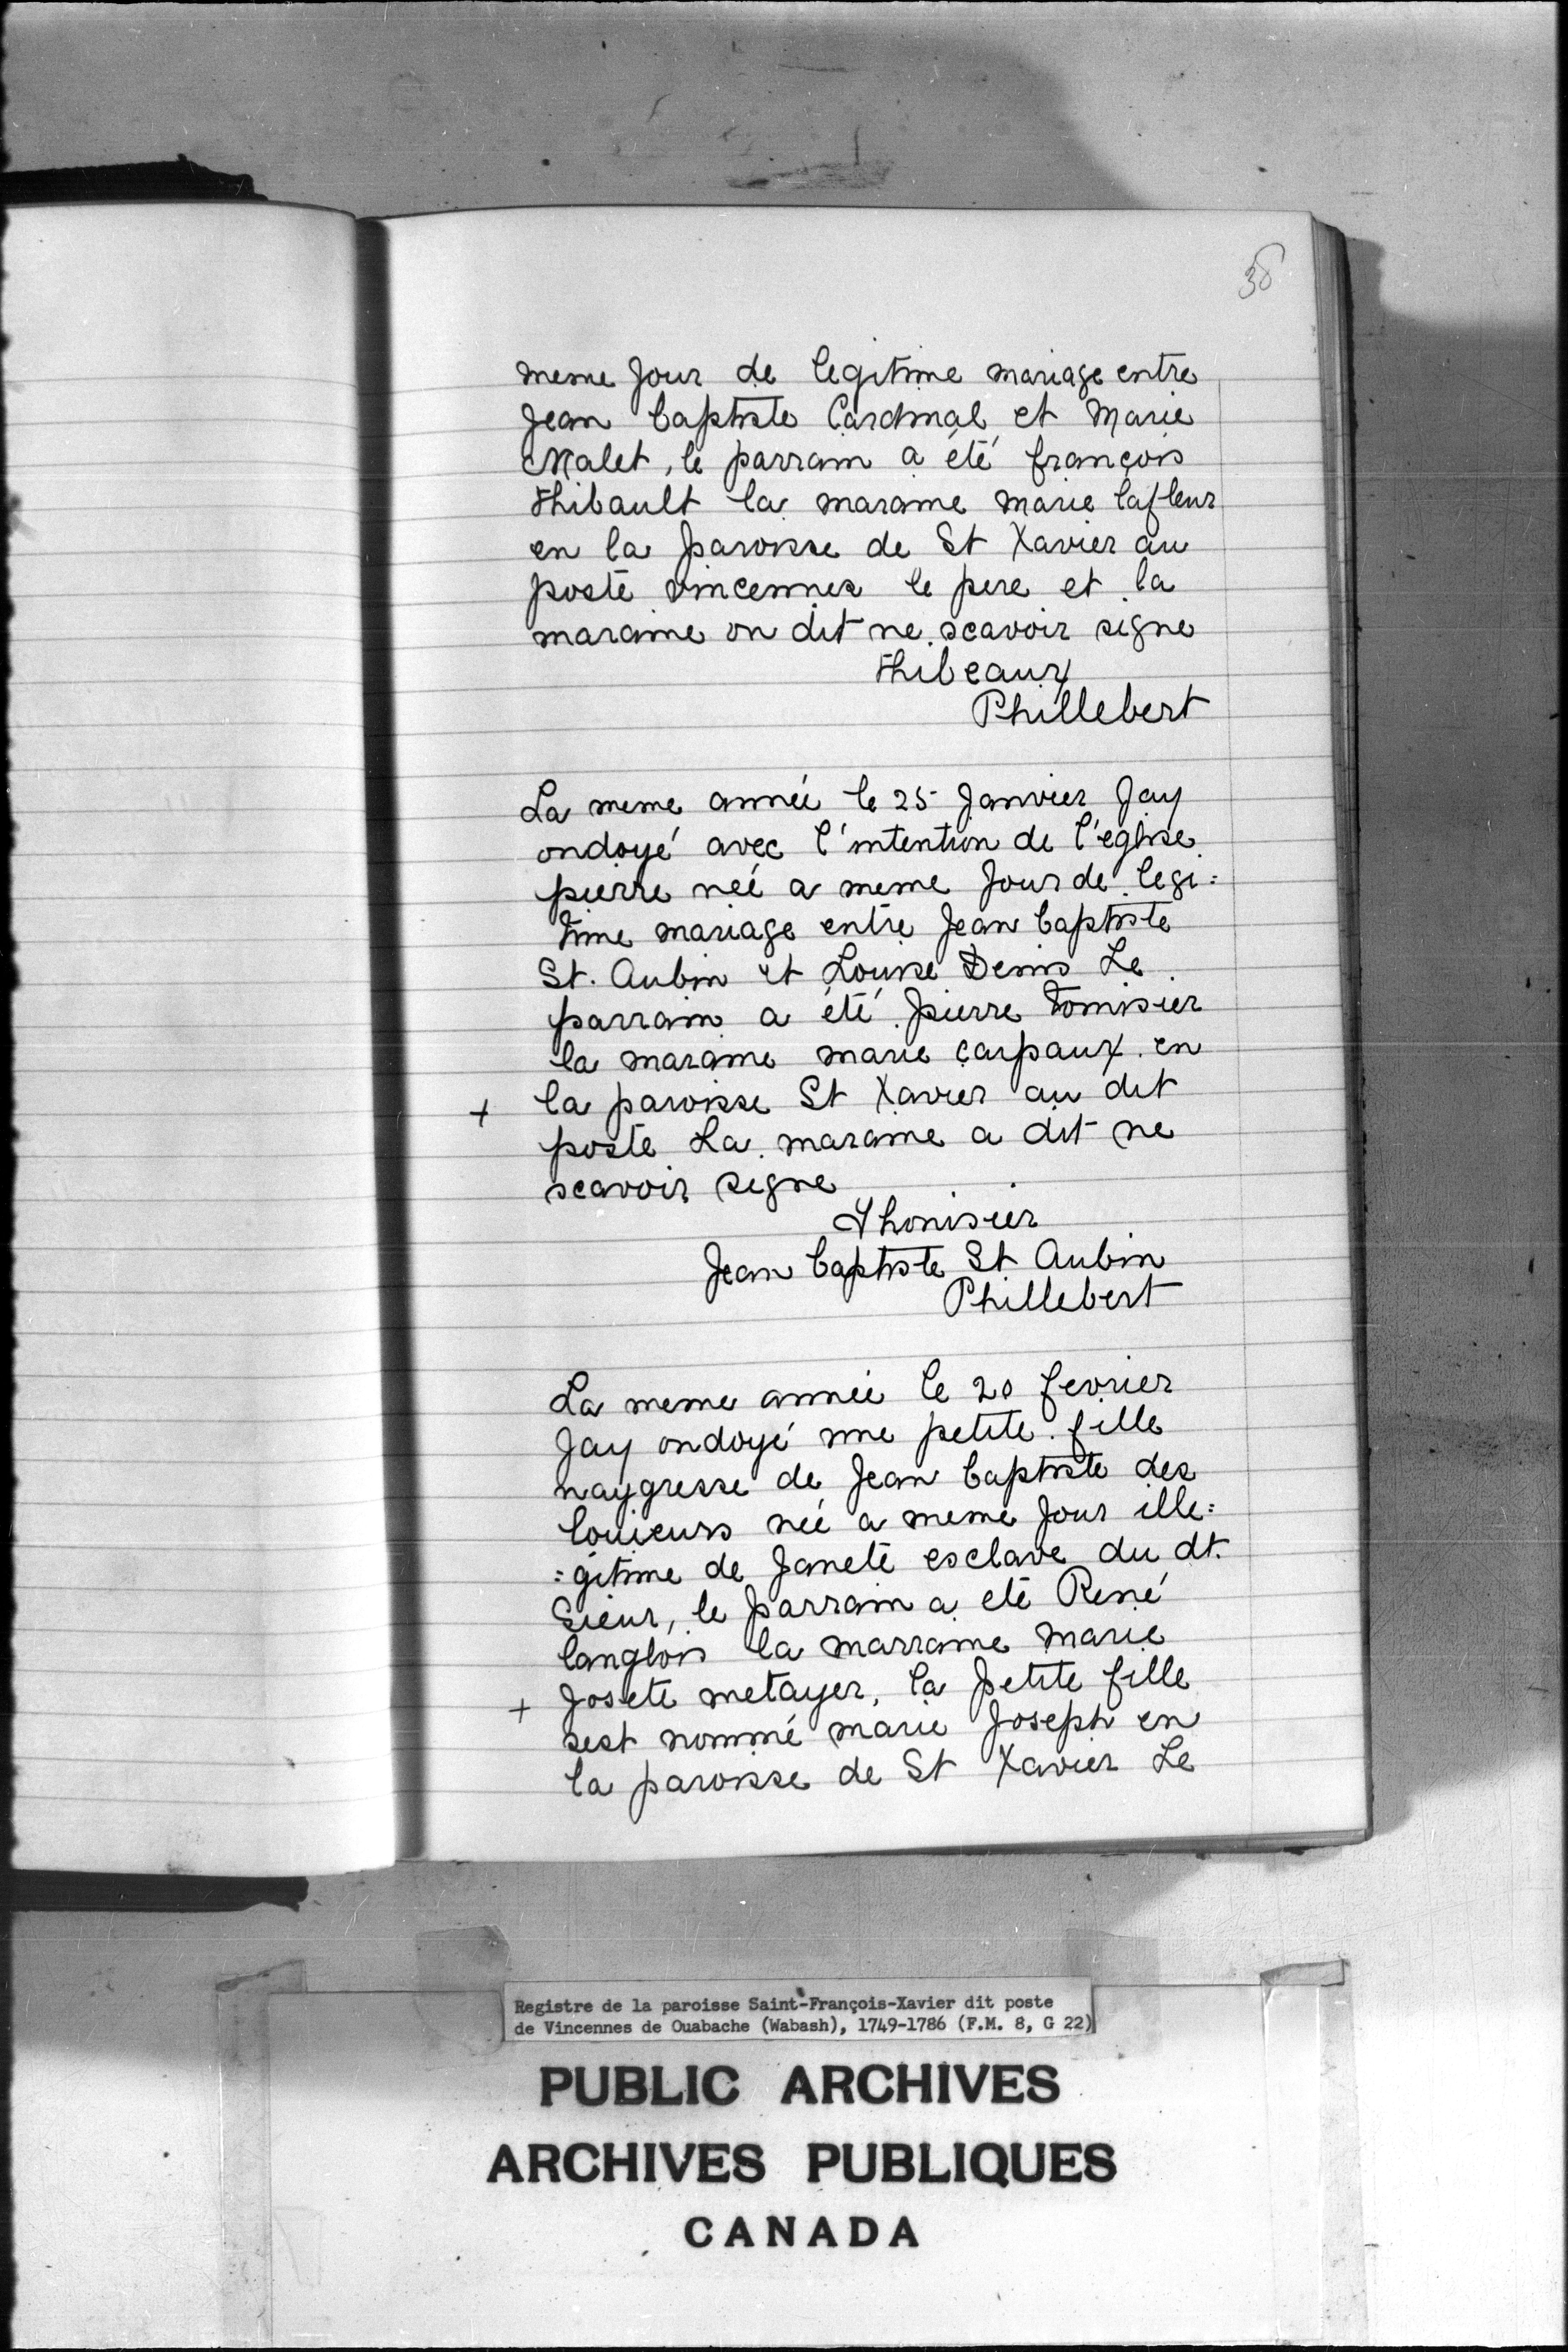 38
meme Jour de legitime mariage entre
Jean baptiste Cardinal et Marie
Malet, le parrain a été françois
thibault la maraine marie lafleur
en la paroisse de St Xavier au
poste vincennes le pere et la
maraine on dit ne scavoir signe
thibeaux
Phillebert
La meme année le 25 Janvier Jay
ondoyé avec l'intention de l'eglise
pierre neé a meme Jour de legi=
time mariage entre Jean baptiste
St. Aubin et Louise Denis Le
parrain a été pierre tomisier
la maraine marie carpaux en
+ la paroisse St Xavier au dit
poste La maraine a dit ne
scavoir signe
Thonisier
Jean baptiste St Aubin
Phillebert
La meme année le 20 fevrier
Jay ondoyé une petite fille
naygresse de Jean baptiste des
louieurs neé a meme Jour ille=
=gitime de Janete esclave du dt.
Sieur, le parrain a eté René
langlois la marraine Marie
+ Josete metayer, la petite fille
sest nommé marie Joseph en
la paroisse de St Xavier Le
Registre de la paroisse Saint-François-Xavier dit poste
de Vincennes de Ouabache (Wabash), 1749-1786 (F.M. 8, G 22)
PUBLIC ARCHIVES
ARCHIVES PUBLIQUES
CANADA